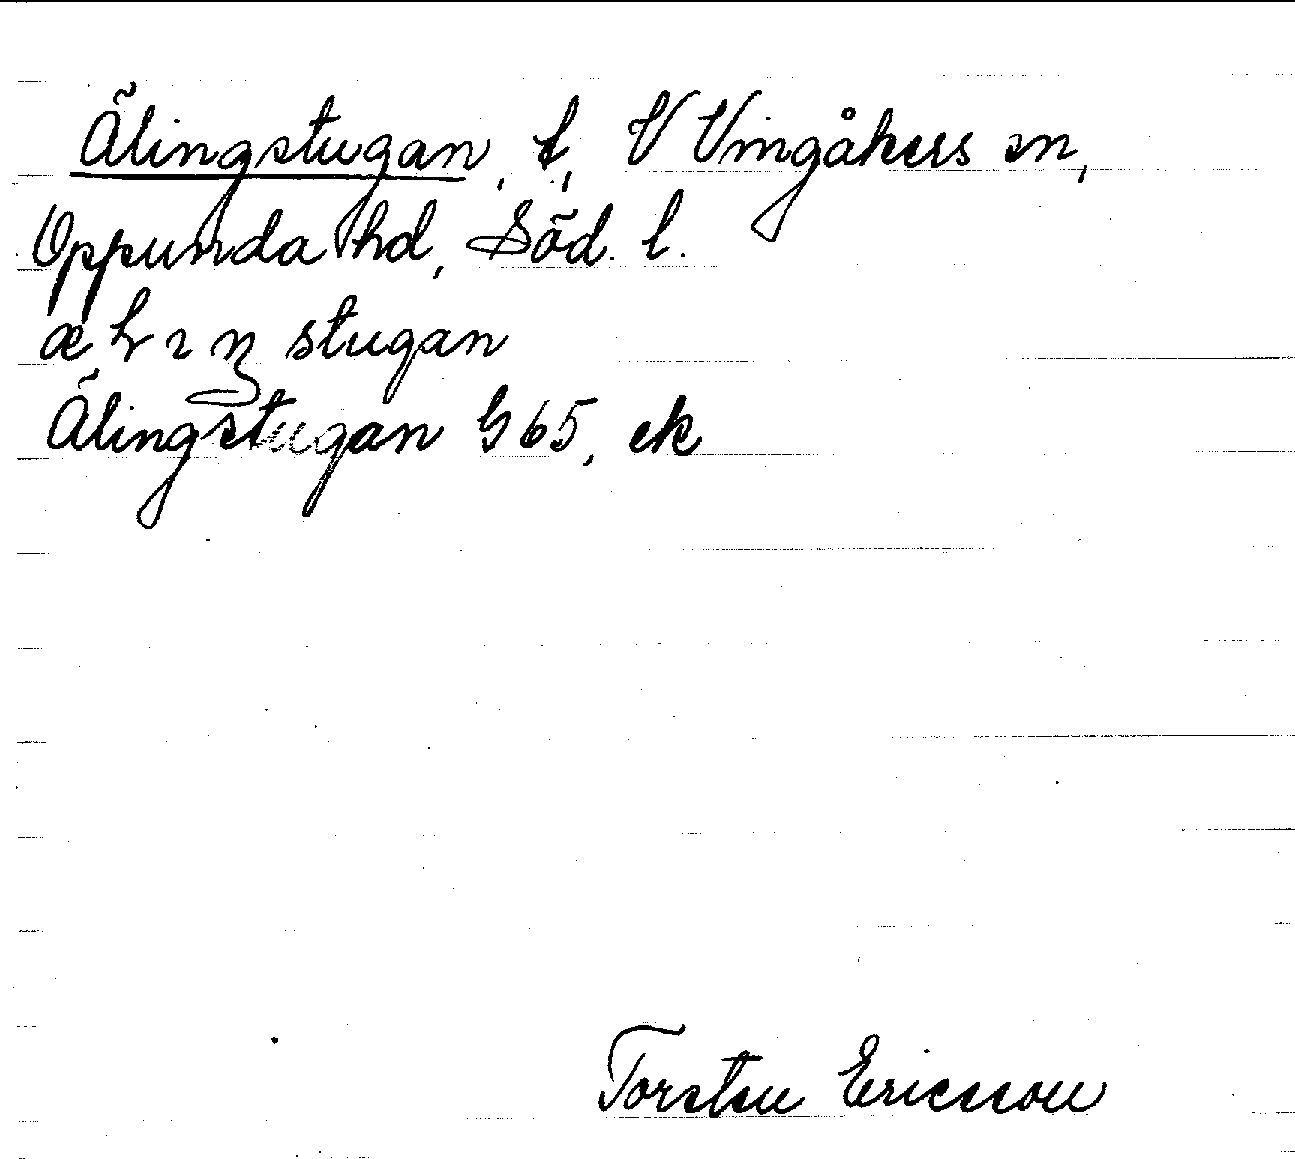 Älingstugan, t, V Vingåkers sn,
Oppunda hd, Söd. l.
stugan
Älingstugan G 65, ek
Torsten Ericsson